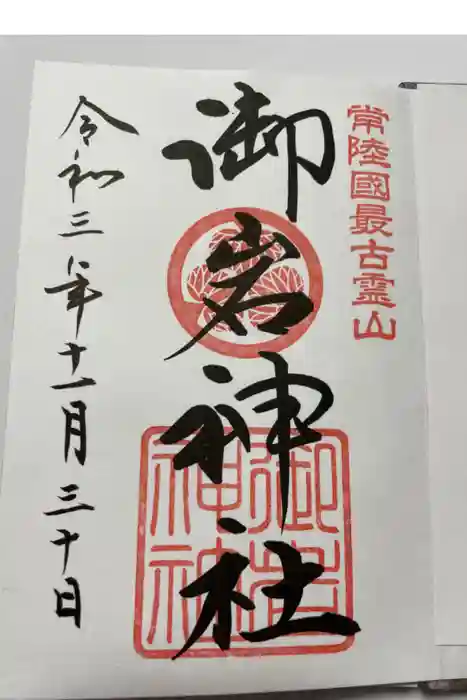 常陸國最古霊山
御岩神社
御岩神社
令和三年十一月三十日